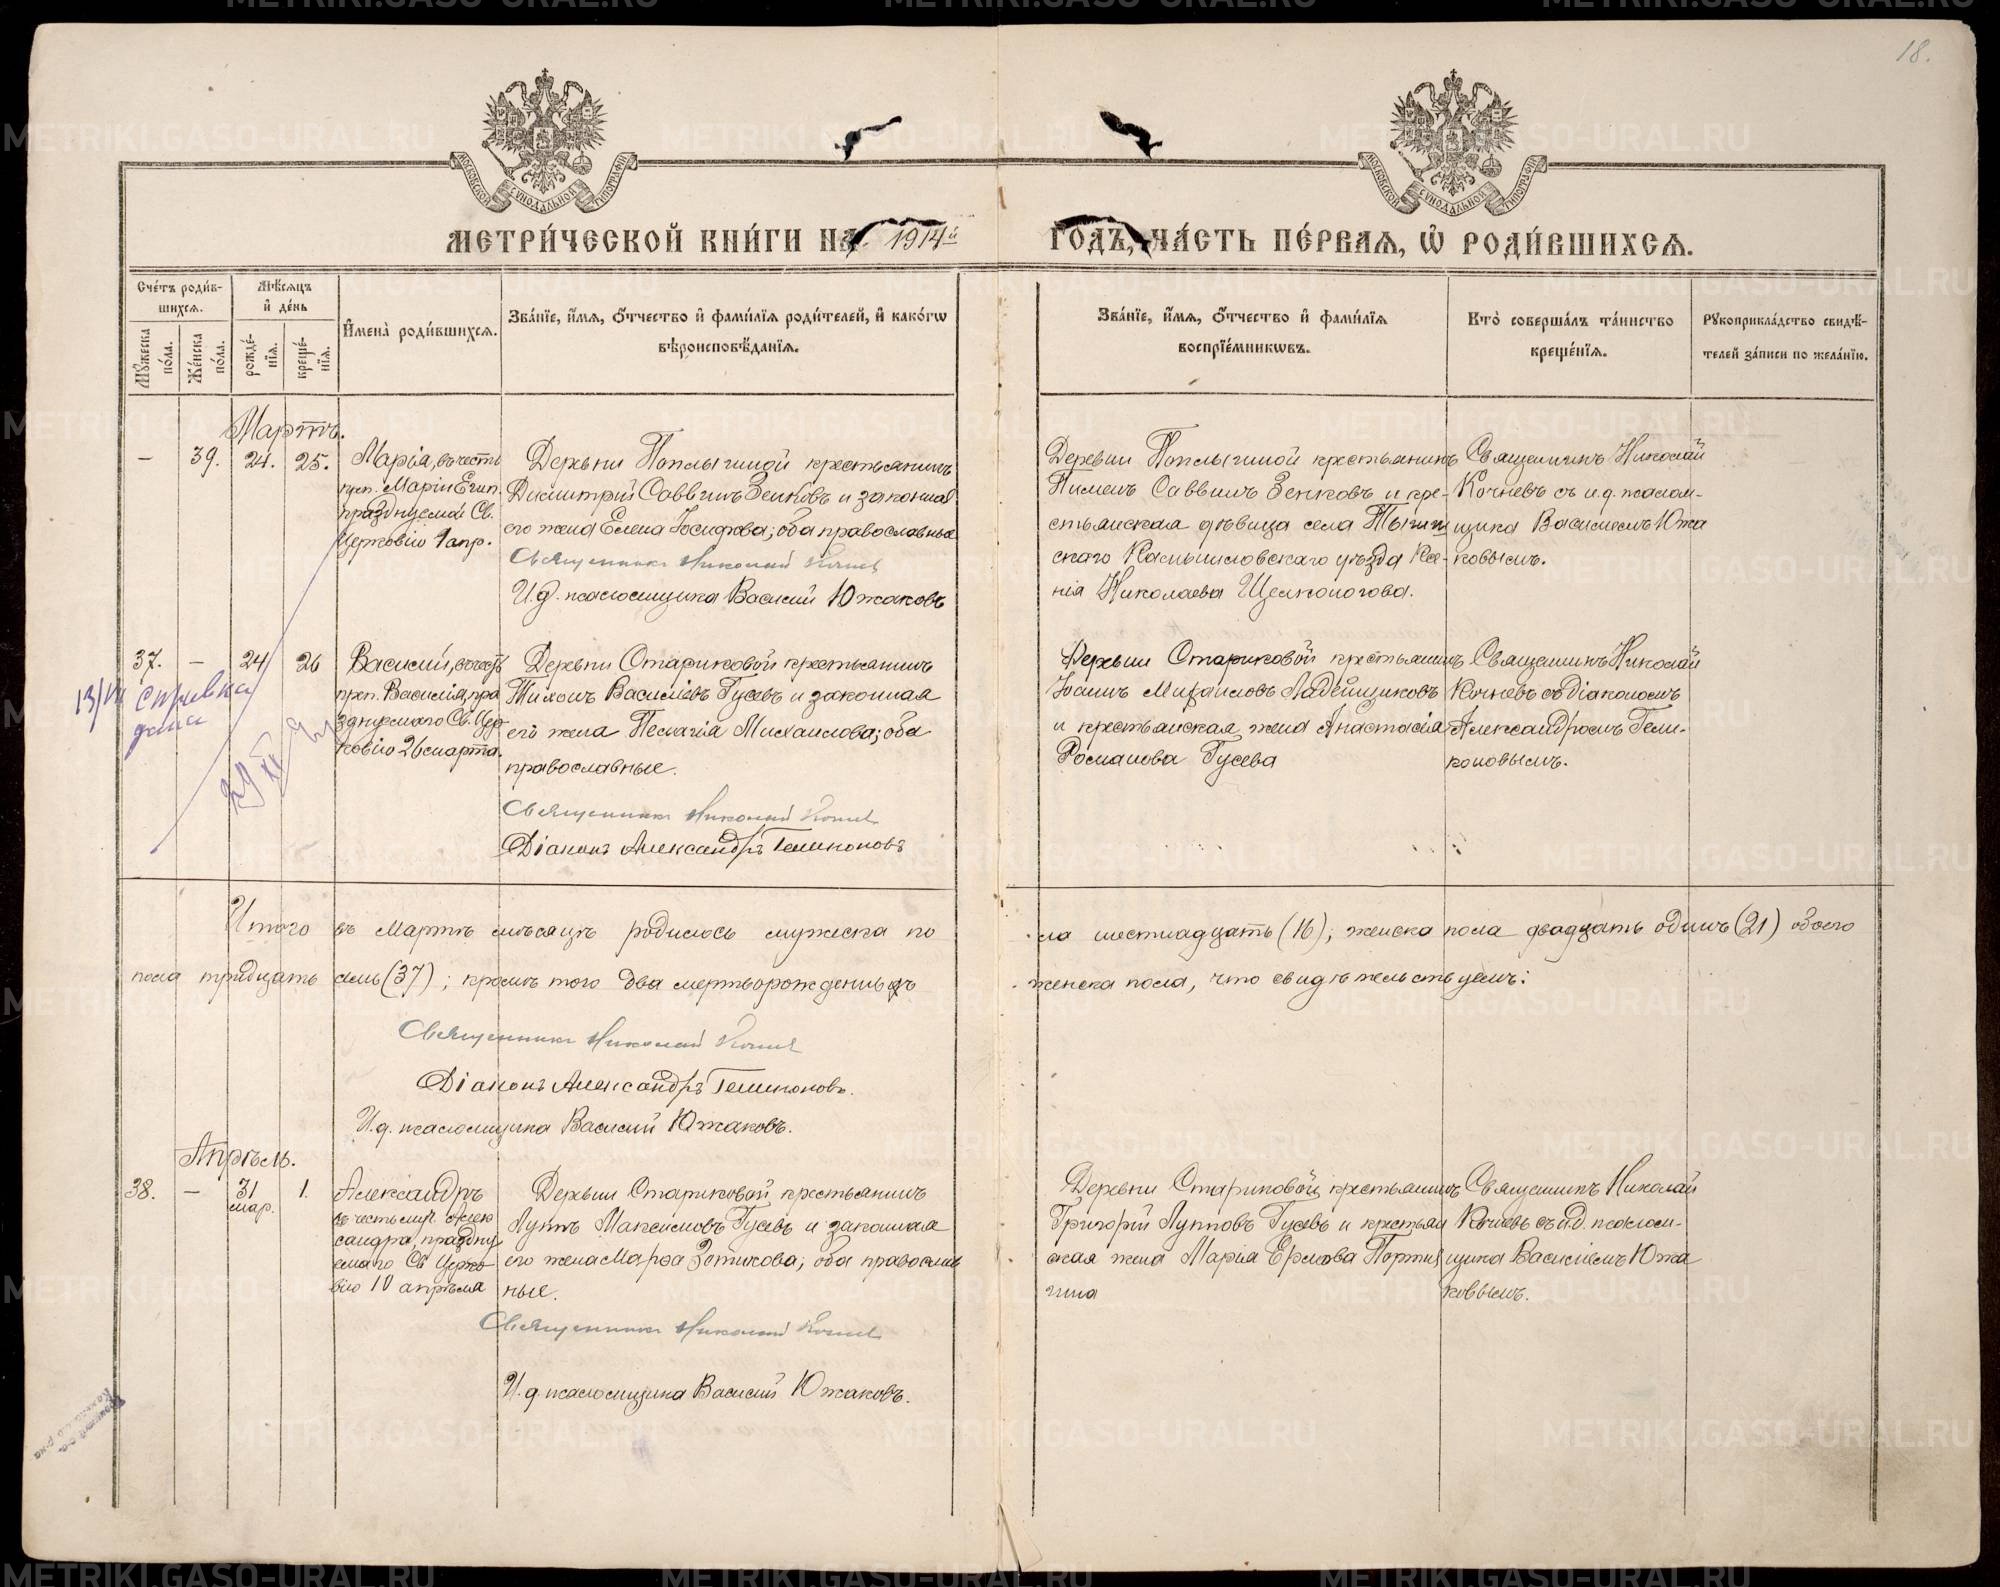 18.
МОСКОВСКОЙ СѴНОДАЛЬНОЙ ТИПОГРАФІИ
МОСКОВСКОЙ СѴНОДАЛЬНОЙ ТИПОГРАФІИ
МЕТРИ́ЧЕСКОЙ КНИ́ГИ НА 1914й ГОДЪ, ЧА́СТЬ ПЕ́РВАЯ, Ѽ РОДИ́ВШИХСЯ.
Сче́тъ роди́в-
шихся.
Мꙋжеска по́ла.
Же́нска по́ла.
Мѣ́сяцъ и҆ де́нь
рожде́нїя.
креще́нїя.
И҆мена̀ роди́вшихся.
Зва́нїе, и҆́мя, ѻ҆́тчество и҆ фами́лїя роди́телей, и҆ како́гѡ
вѣроисповѣ́данїя.
Зва́нїе, и҆́мя, ѻ҆́тчество и҆ фами́лїя
воспрїе́мникѡвъ.
Кто̀ соверша́лъ та́инство
креще́нїя.
Рꙋкоприкла́дство свидѣ́-
телей за́писи по жела́нїю.
Мартъ.
— 39. 24. 25.
Марія, въ честь
прп. Маріи Егип.
празднуемой Св.
Церковію 1 апр.
Деревни Поплыгиной крестьянинъ
Димитрій Саввинъ Зенковъ и законная
его жена Елена Іосифова; оба православные
Священникъ Николай Кочневъ
И.д. псаломщика Василий Южаковъ
Деревни Поплыгиной крестьянинъ
Пименъ Саввинъ Зенковъ и кре-
стьянская дѣвица села
скаго Камышловскаго уѣзда Ксе-
нія Николаева Щелконогова.
Священникъ Николай
Кочневъ съ и.д. псалом-
щика Василіемъ Южа
ковымъ.
37. — 24 26
Василий, въ честь
прп. Василія, пра
зднуемаго Св. Цер-
ковію 26 марта.
Деревни Стариковой крестьянинъ
Тихонъ Василіевъ Гусевъ и законная
его жена Пелагія Михаилова; оба
православные.
Священникъ Николай Кочневъ
Діаконъ Александръ Геликоновъ
Деревни Стариковой крестьянинъ
Іоаннъ Михаиловъ Ладейщиковъ
и крестьянская жена Анастасія
Романова Гусева
Священникъ Николай
Кочневъ съ діакономъ
Александромъ Гели-
коновымъ.
справка
дана
Итого въ Мартѣ мѣсяцѣ родилось мужеска по ла шестнадцать (16); женска пола двадцать одинъ (21) обоего
пола тридцать семь (37); кромѣ того два мертворожденныхъ женска пола, что свидѣтельствуемъ:
Священникъ Николай Кочневъ
Діаконъ Александръ Геликоновъ.
И.д. псаломщика Василий Южаковъ.
Апрѣль.
38. — 31 мар. 1.
Александръ
въ честь муч. Алек
сандра, праздну
емаго Св Церко
вію 10 апрѣля
Деревни Стариковой крестьянинъ
Луппъ Максимовъ Гусевъ и законная
его жена Марѳа Зотикова; оба православ
ные.
Священникъ Николай Кочневъ
И.д. псаломщика Василий Южаковъ.
Деревни Стариковой крестьянинъ
Григорій Лупповъ Гусевъ и крестьян
ская жена Марія Ермова Портня
гина
Священникъ Николай
Кочневъ съ и.д. псалом-
щика Василіемъ Южа
ковымъ.
METRIKI.GASO-URAL.RU